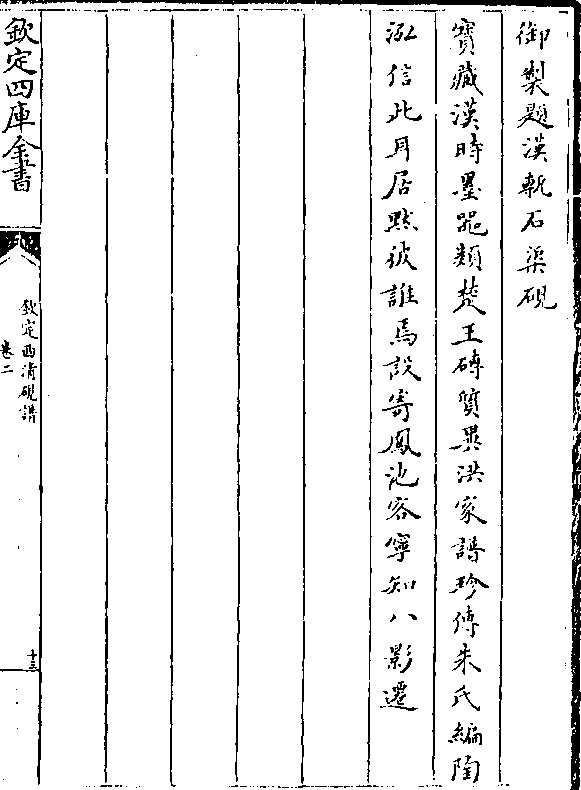 御製題漢甎石渠硯
寶藏漢時類楚王磚質異洪家譜珍傳朱氏編陶
泓信此耳居黙彼誰焉設寄鳳池客寧知八影遷
欽定四庫全書
欽定西清硯譜
卷二
十三